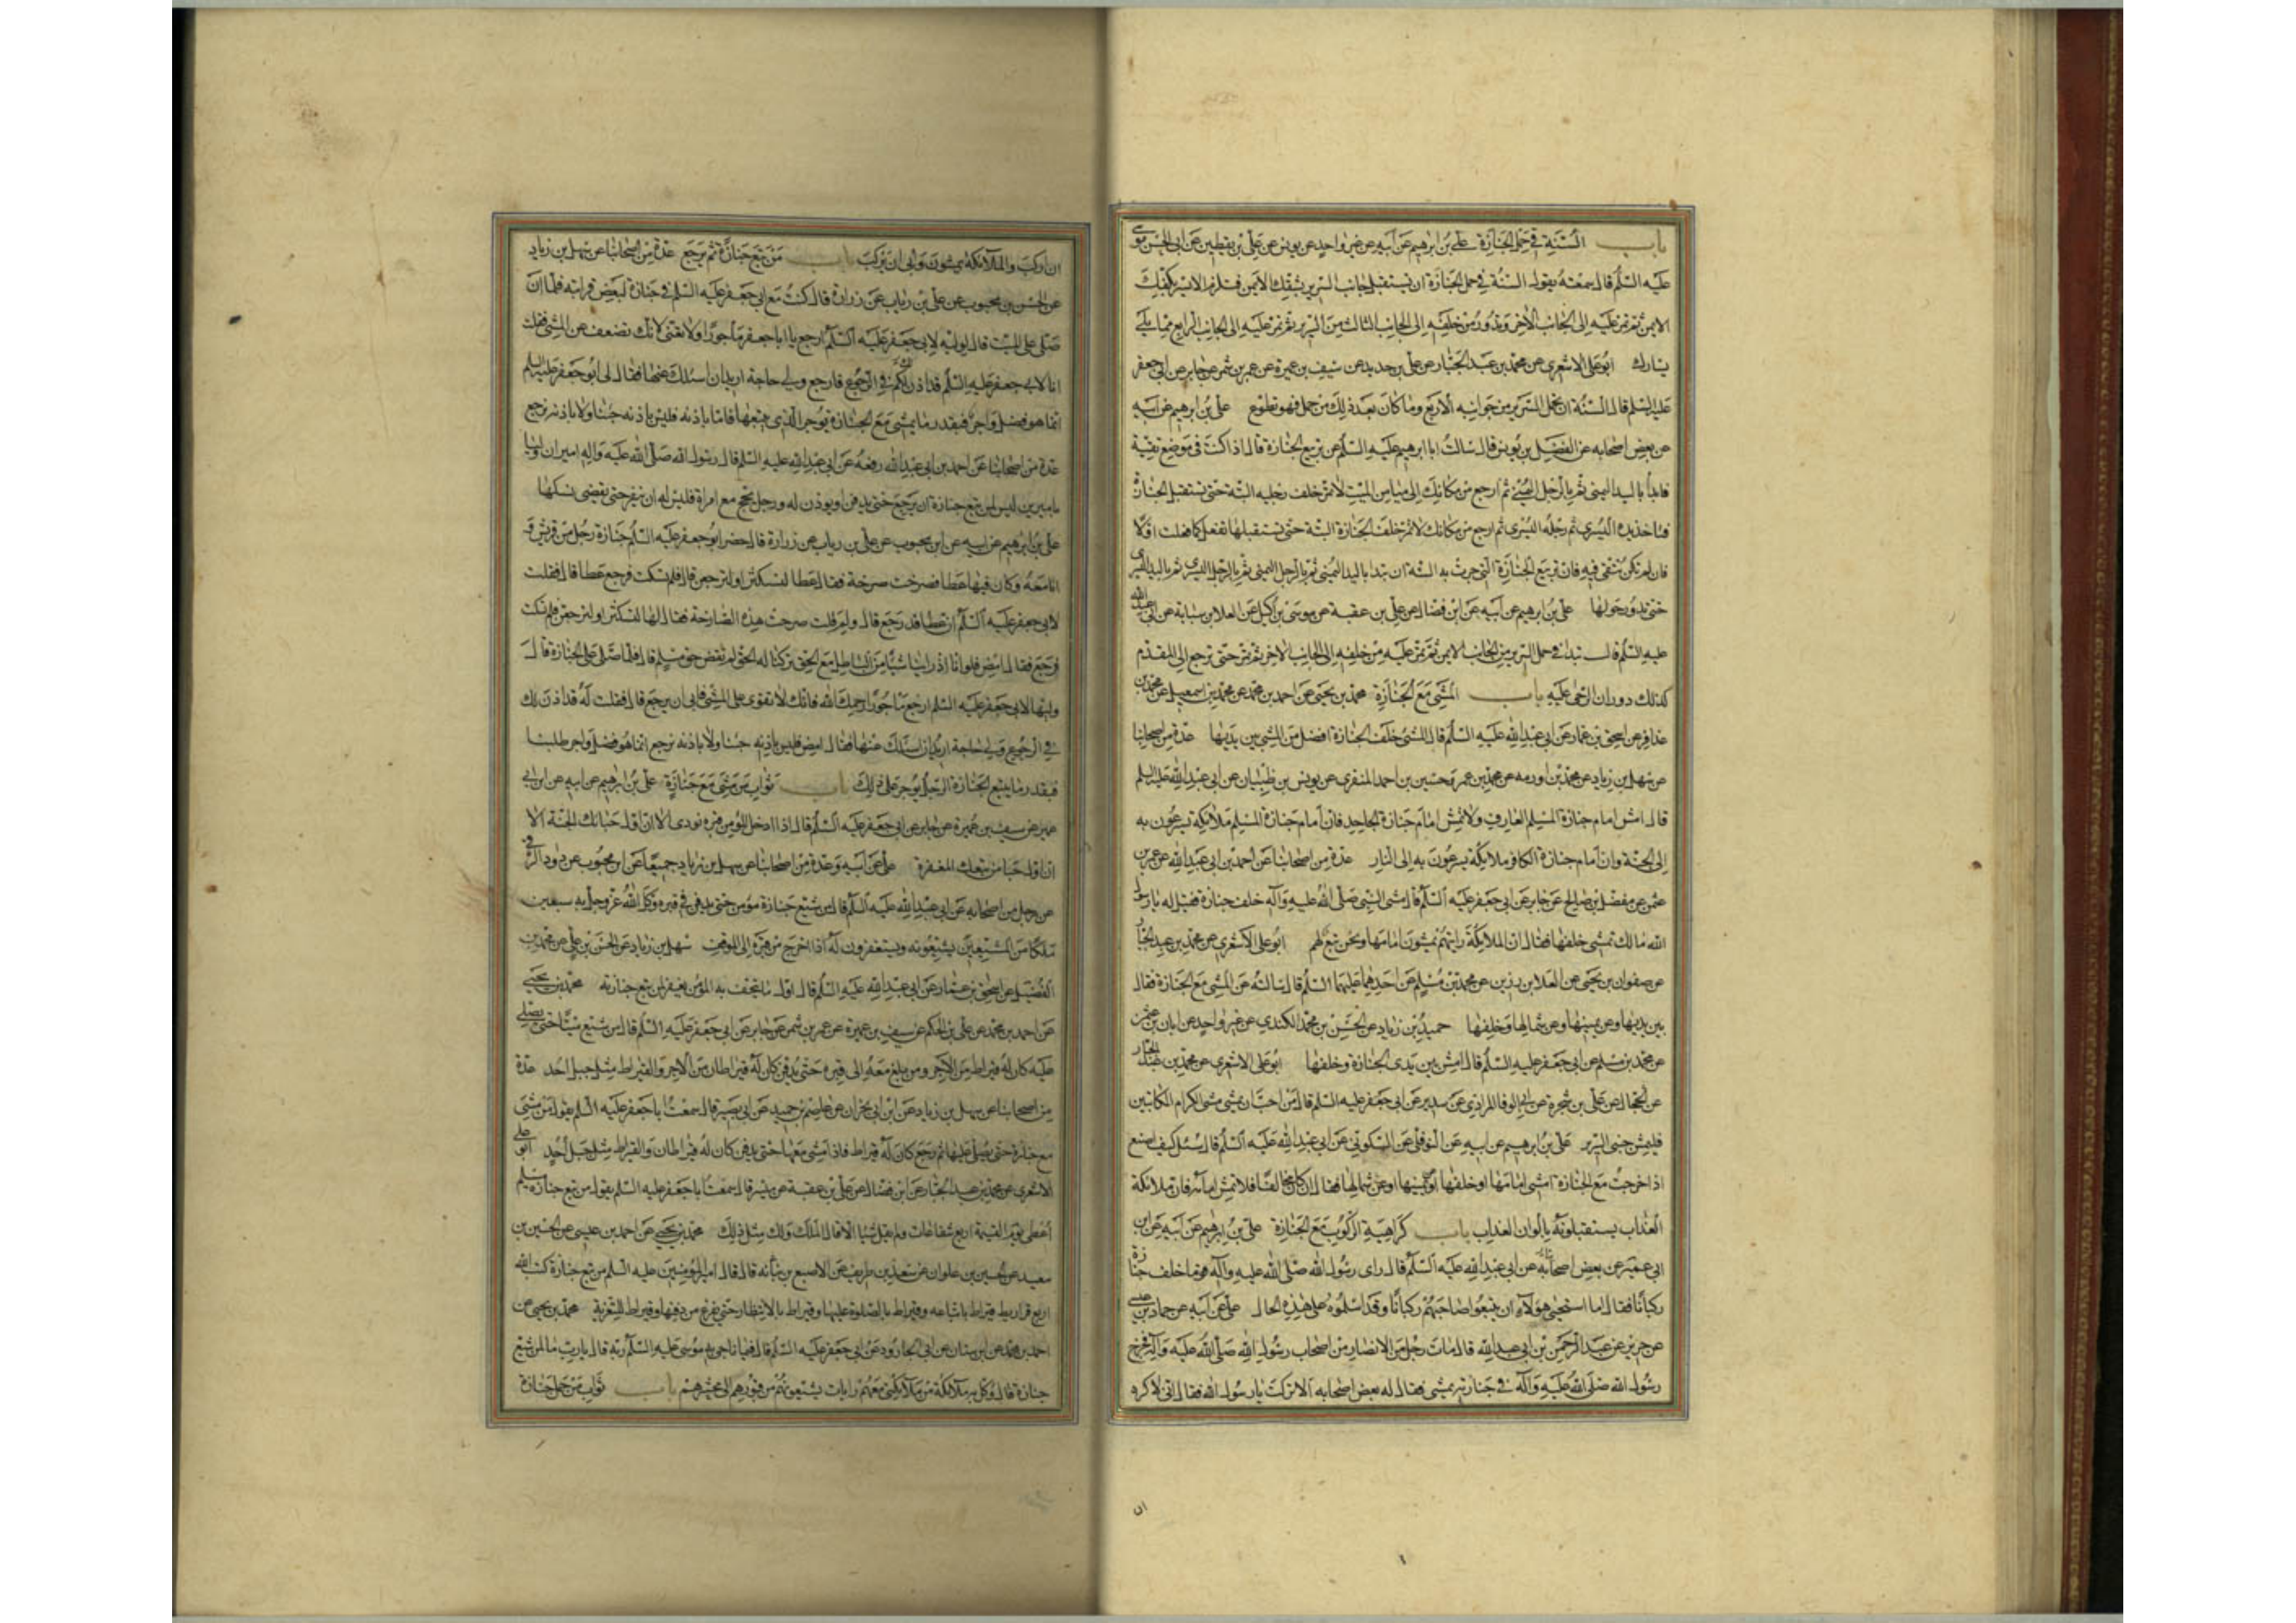 باب السنة في حمل الجنازة علي بن ابرهيم عن ابيه عن غير واحد عن يونس عن علي بن يقطين عن ابى الحسن موسى
عليه السلم قال سمعته يقول السنة في حمل الجنازة ان تستقبل جانب السرير بشقك الايمن فتلزم الايسر بكفك
الايمن ثم تمر عليه إلى الجانب الاخر وتدور من خلفه إلى الجانب الثالث من السرير ثم تمر عليه إلى الجانب الرابع مما يلي
يسارك ابو على الاشعري عن محمد بن عبد الجبار عن علي بن حديد عن سيف بن عميرة عن عمر بن شمر عن جابر عن ابى جعفر
عليه السلم قال السنة ان يحمل السرير من جوانبه الاربع وما كان بعد ذلك من حمل فهو تطوع على بن ابرهيم عن ابيه
عن بعض اصحابه عن الفضل بن يونس قال سالت ابا ابرهيم عليه السلم عن تربيع الجنازة قال اذا كنت في موضع تقية
فابدأ باليد اليمنى ثم بالرجل اليمنى ثم ارجع من مكانك إلى ميامن الميت لا تمر خلف رجليه البتة حتى تستقبل الجنازة
فتاخذ يده اليسرى ثم رجله اليسرى ثم ارجع من مكانك لا تمر خلف الجنازة البتة حتى تستقبلها تفعل كما فعلت اولا
فان لم تكن تتقى فيه فان تربيع الجنازة التي جرت به السنة ان تبدا باليد اليمنى ثم بالرجل اليمنى ثم بالرجل اليسرى ثم باليد اليسرى
حتى تدور حولها على بن ابرهيم عن ابيه عن ابن فضال عن علي بن عقبة عن موسى بن اكيل عن العلا بن سيابة عن ابى عبد الله
عليه السلم قال تبدا في حمل السرير من الجانب الايمن ثم تمر عليه من خلفه إلى الجانب الاخر ثم تمر حتى ترجع إلى المقدم
كذلك دوران الرحى عليه باب المشى مع الجنازة محمد بن يحيى عن احمد بن محمد عن محمد بن اسمعيل عن محمد بن
عذافر عن اسحق بن عمار عن ابى عبد الله عليه السلم قال المشى خلف الجنازة افضل من المشي بين يديها عدة من اصحابنا
عن سهل بن زياد عن محمد بن اورمه عن محمد بن عمر وحسين بن احمد المنقرى عن يونس بن ظبيان عن ابى عبد الله عليه السلم
قال امش امام جنازة المسلم العارف ولا تمش امام جنازة الجاحد فان امام جنازة المسلم ملائكة يسرعون به
إلى الجنة وان امام جنازة الكافر ملائكة يسرعون به إلى النار عدة من اصحابنا عن احمد بن ابى عبد الله عن عمرو بن
عثمن عن مفضل بن صالح عن جابر عن ابى جعفر عليه السلم قال مشى النبى صلى الله عليه وآله خلف جنازة فقيل له يا رسول
الله مالك تمشى خلفها فقال ان الملائكة رايتهم يمشون امامها ونحن تبع لهم ابو على الاشعرى عن محمد بن عبد الجبار
عن صفوان بن يحيى عن العلا بن رزين عن محمد بن مسلم عن احدهما عليهما السلم قال سالته عن المشى مع الجنازة فقال
بين يديها وعن يمينها وعن شمالها وخلفها حميد بن زياد عن الحسن بن محمد الكندي عن غير واحد عن ابان بن عثمن
عن محمد بن مسلم عن ابى جعفر عليه السلم قال امش بين يدى الجنازة وخلفها ابو على الاشعرى عن محمد بن عبد الجبار
عن الحجال عن على بن شجرة عن ابى الوفا المرادى عن سدير عن ابى جعفر عليه السلم قال من احب ان يمشى مشى الكرام الكاتبين
فليمش جنبى السرير على بن ابرهيم عن ابيه عن النوفلى عن السكونى عن ابى عبد الله عليه السلم قال سئل كيف اصنع
اذا خرجت مع الجنازة امشى امامها او خلفها او يمينها او عن شمالها فقال ان كان مخالفا فلا تمش امامه فان ملائكة
العذاب يستقبلونه بالوان العذاب باب كراهية الركوب مع الجنازة على بن ابرهيم عن ابيه عن ابن
ابى عمير عن بعض اصحابه عن ابى عبد الله عليه السلم قال راى رسول الله صلى الله عليه وآله قوما خلف جنازة
ركبانا فقال اما استحيى هؤلاء ان يتبعوا صاحبهم ركبانا وقد اسلموه على هذه الحال على عن ابيه عن حماد بن عيسى
عن حريز عن عبد الرحمن بن ابى عبد الله قال مات رجل من الانصار من اصحاب رسول الله صلى الله عليه وآله فخرج
رسول الله صلى الله عليه وآله في جنازته يمشى فقال له بعض اصحابه الا تركب يا رسول الله فقال انى لاكره
ان اركب والملائكة يمشون وابى ان يركب باب من تبع جنازة ثم يرجع عدة من اصحابنا عن سهل بن زياد
عن الحسن بن محبوب عن علي بن رياب عن زرارة قال كنت مع ابى جعفر عليه السلم في جنازة لبعض قرابته فلما ان
صلى على الميت قال وليه لابى جعفر عليه السلم ارجع يا ابا جعفر ماجورا ولا تعنى لانك تضعف عن المشى فقلت
انا لابى جعفر عليه السلم قد اذن لك في الرجوع فارجع ولى حاجة اريد ان اسئلك عنها فقال لى ابو جعفر عليه السلم
انما هو فضل واجر فبقدر ما يمشى مع الجنازة يوجر الذى يتبعها فاما باذنه فليس باذنه جئنا ولا باذنه نرجع
عدة من اصحابنا عن احمد بن ابى عبد الله رفعه عن ابى عبد الله عليه السلم قال رسول الله صلى الله عليه وآله اميران وليسا
باميرين ليس لمن تبع جنازة ان يرجع حتى يدفن او يوذن له ورجل يحج مع امراة فليس له ان ينفر حتى تقضى نسكها
على بن ابرهيم عن ابيه عن ابن محبوب عن على بن رياب عن زرارة قال حضر ابو جعفر عليه السلم جنازة رجل من قريش و
انا معه وكان فيها عطا فصرخت صرخة فقال عطا لتسكتن او لنرجعن قال فلم تسكت فرجع عطا قال فقلت
لابى جعفر عليه السلم ان عطا قد رجع قال ولم قلت صرخت هذه الصارخة فقال لها لتسكتن او لنرجعن فلم تسكت
فرجع فقال امض فلو انا اذا راينا شيئا من الباطل مع الحق تركنا له الحق لم نقض حق مسلم قال فلما صلى على الجنازة قال
وليها لابى جعفر عليه السلم ارجع ماجورا رحمك الله فانك لا تقوى على المشى فابى ان يرجع قال فقلت له قد اذن لك
في الرجوع ولى حاجة اريد ان اسئلك عنها فقال امض فليس باذنه جئنا ولا باذنه نرجع انما هو فضل واجر طلبنا
فبقدر ما يتبع الجنازة الرجل يوجر على ذلك باب ثواب من مشى مع جنازة على بن ابراهيم عن ابيه عن ابن ابى
عمير عن سيف بن عميرة عن جابر عن ابى جعفر عليه السلم قال اذا ادخل المؤمن قبره نودى الا ان اول حبائك الجنة الا
ان اول حبا من تبعك المغفرة على عن ابيه وعدة من اصحابنا عن سهل بن زياد جميعا عن ابن محبوب عن داود الرقى
عن رجل من اصحابه عن ابى عبد الله عليه السلم قال من شيع جنازة مؤمن حتى يدفن في قبره وكل الله عز وجل به سبعين
ملكا من المشيعين يشيعونه ويستغفرون له اذا اخرج من قبره إلى الموقف سهل بن زياد عن الحسن بن على عن محمد بن
الفضيل عن اسحق بن عمار عن ابى عبد الله عليه السلم قال اول ما يتحف به المؤمن يغفر لمن تبع جنازته محمد بن يحيى
عن احمد بن محمد عن على بن الحكم عن سيف بن عميرة عن عمر بن شمر عن جابر عن ابى جعفر عليه السلم قال من شيع ميتا حتى يصلى
عليه كان له قيراط من الاجر ومن بلغ معه إلى قبره حتى يدفن كان له قيراطان من الاجر والقيراط مثل جبل احد عدة
من اصحابنا عن سهل بن زياد عن ابن ابى نجران عن عاصم بن حميد عن ابى بصير قال سمعت ابا جعفر عليه السلم يقول من مشى
مع جنازة حتى يصلى عليها ثم رجع كان له قيراط فاذا مشى معها حتى يدفن كان له قيراطان والقيراط مثل جبل احد ابو على
الاشعرى عن محمد بن عبد الجبار عن ابن فضال عن على بن عقبة عن ميسر قال سمعت ابا جعفر عليه السلم يقول من تبع جنازة مسلم
اعطى يوم القيمة اربع شفاعات ولم يقل شيئا الا قال الملك ولك مثل ذلك محمد بن يحيى عن احمد بن عيسى عن الحسين بن
سعيد عن الحسين بن علوان عن سعد بن طريف عن الاصبغ بن نباته قال قال امير المؤمنين عليه السلم من تبع جنازة كتب الله
اربع قراريط قيراط باتباعه وقيراط بالصلوة عليها وقيراط بالانتظار حتى يفرغ من دفنها وقيراط للتعزية محمد بن يحيى عن
احمد بن محمد عن ابن سنان عن ابى الجارود عن ابى جعفر عليه السلم قال فيما ناجى به موسى عليه السلم ربه قال يا رب ما لمن شيع
جنازة قال اوكل به ملائكة من ملائكتى معهم رايات يشيعونهم من قبورهم إلى محشرهم باب ثواب من حمل جنازة
ان